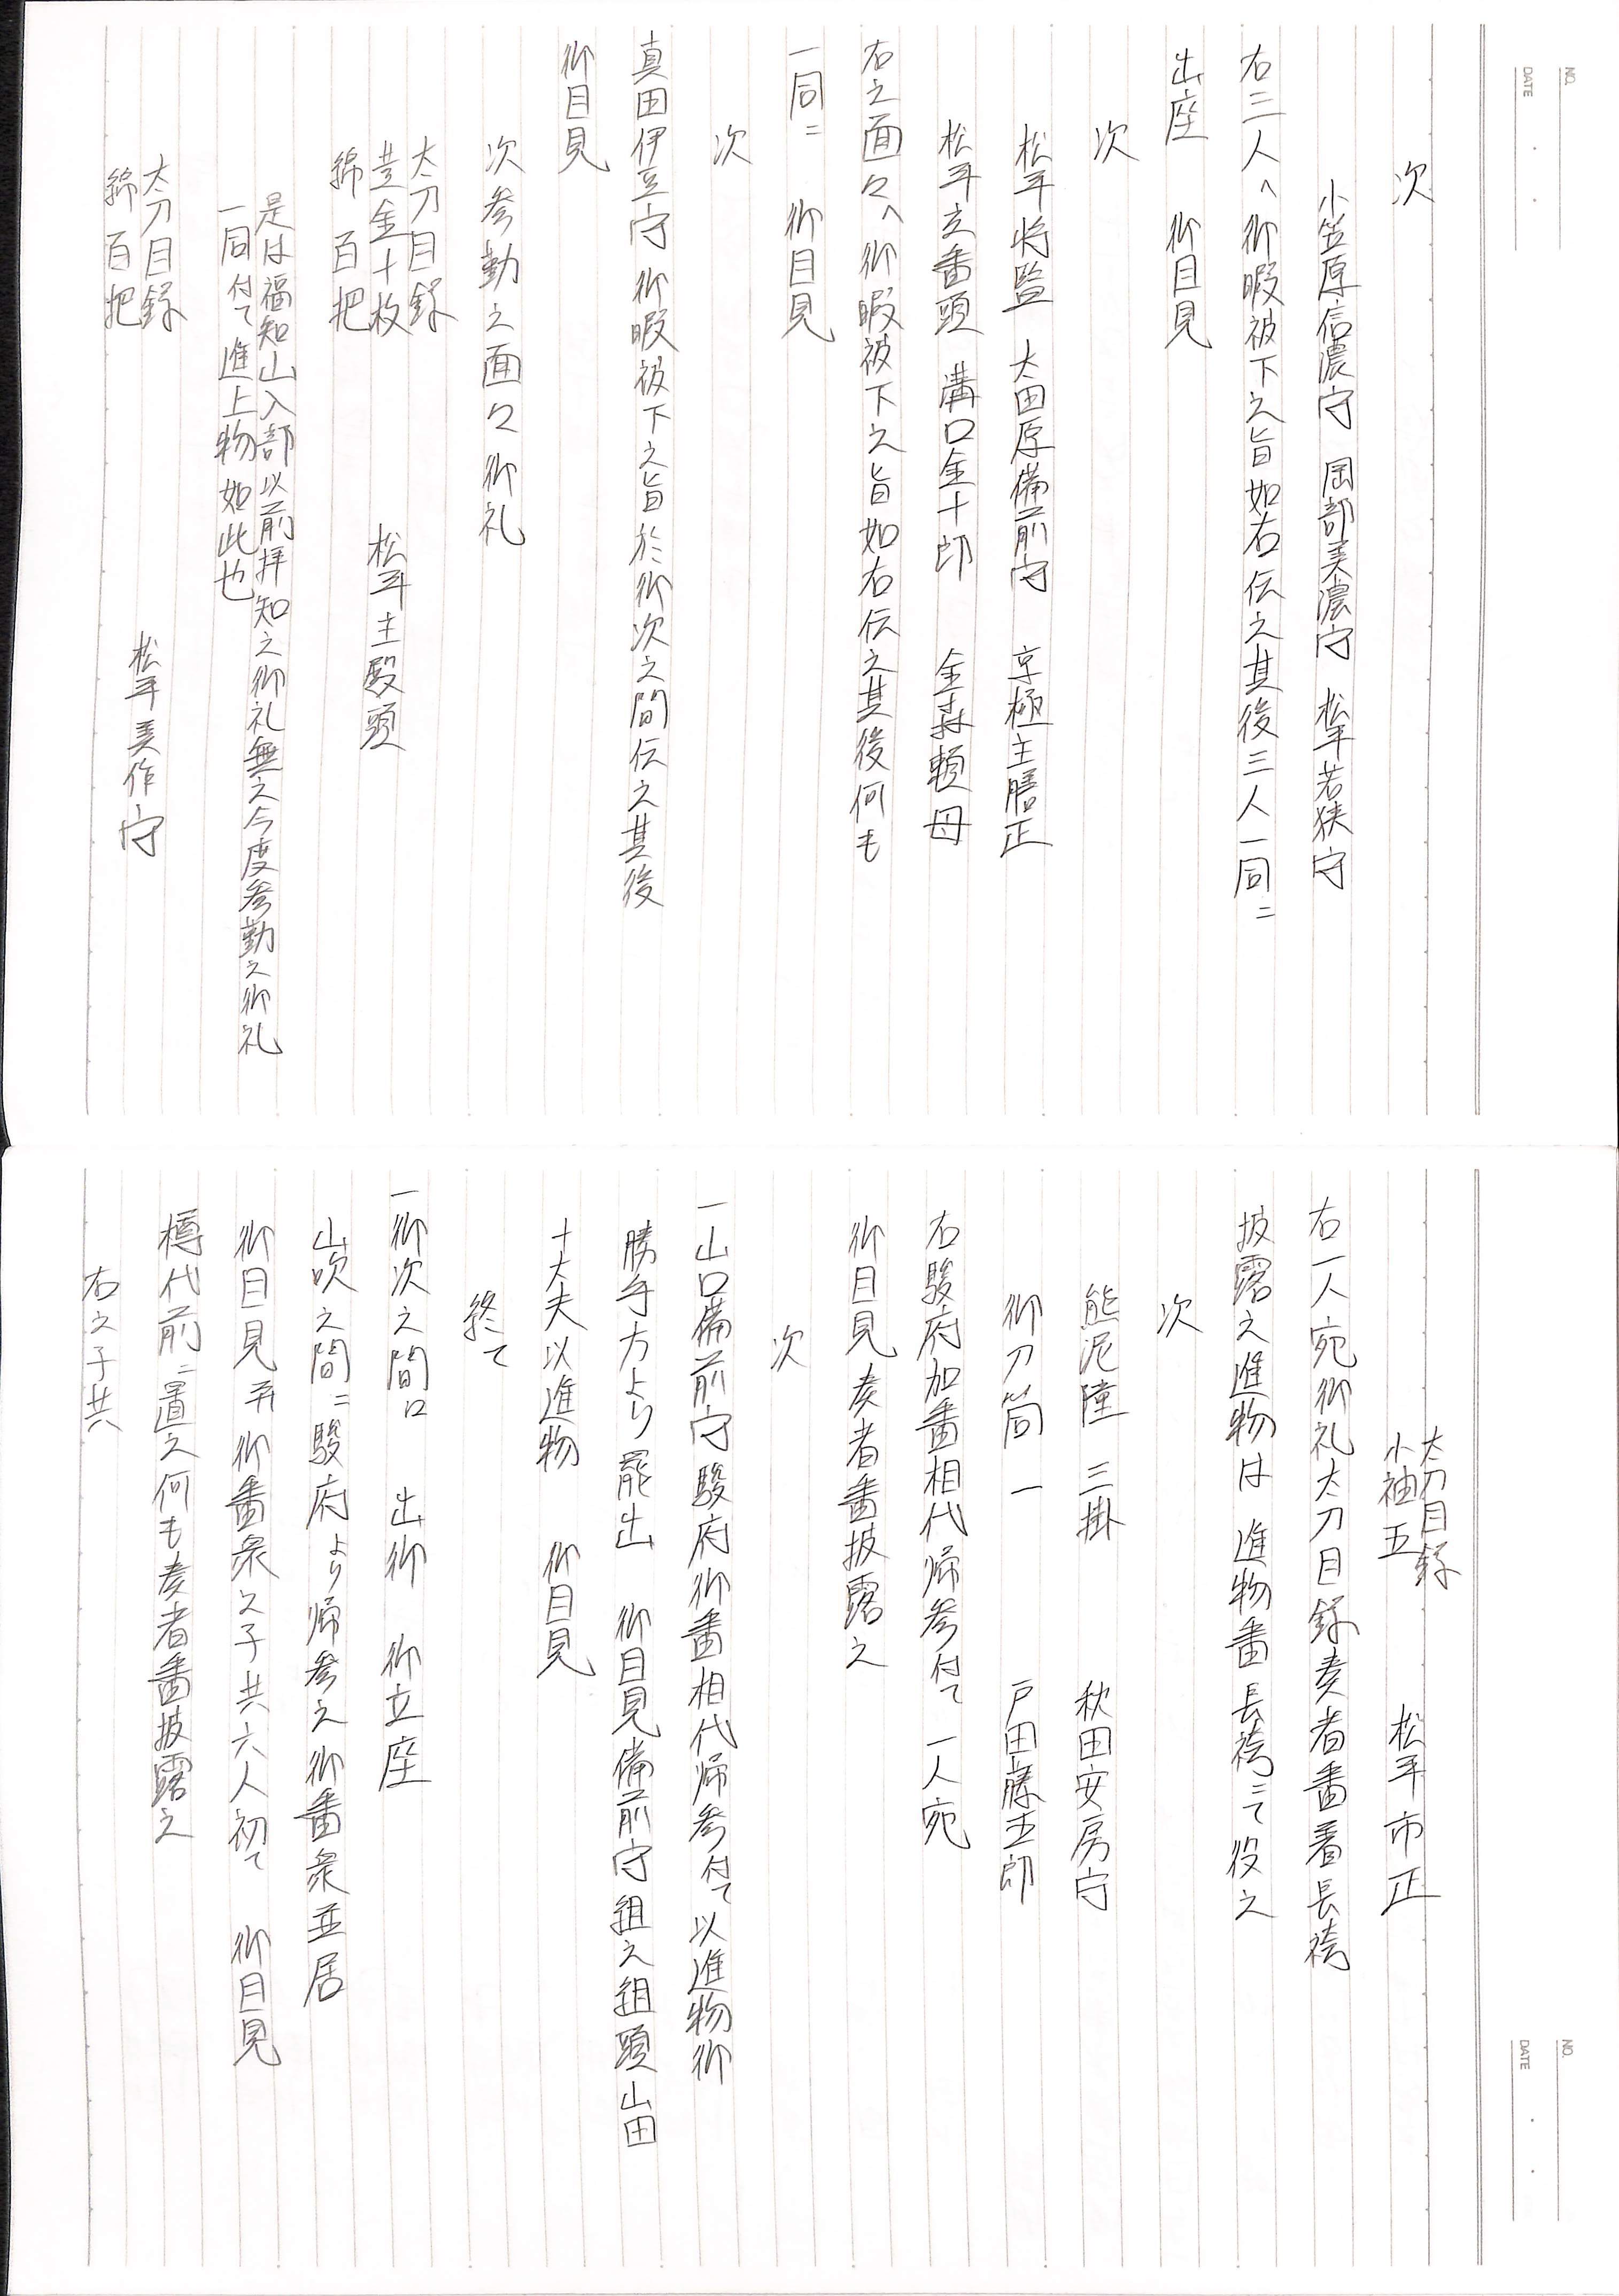 NO.
DATE
次
小笠原信濃守 岡部美濃守 松平若狭守
右三人へ御暇被下之旨如右伝之其後三人一同ニ
出座 御目見
次
松平将監 太田原備前守 京極主膳正
松平玄番頭 溝口金十郎 金森頼母
右之面々へ御暇被下之旨如右伝之其後何も
一同ニ 御目見
次
真田伊豆守 御暇被下之旨於御次之間伝之其後
御目見
次参勤之面々御礼
太刀目録
黄金十枚 松平主殿頭
綿百把
是は福知山入部以前拝知之御礼無之今度参勤之御礼
一同付て進上物如此也
太刀目録
綿百把 松平美作守
NO.
DATE
太刀目録
小袖五 松平市正
右一人宛御礼太刀目録奏者番着長袴
披露之進物は 進物番長袴ニて役之
次
熊泥障 三掛 秋田安房守
御刀筒 一 戸田藤五郎
右駿府加番相代帰参付て 一人宛
御目見奏者番披露之
次
一山口備前守駿府御番相代帰参付て以進物御
勝手方より罷出 御目見備前守組之組頭山田
十太夫以進物 御目見
終て
一御次之間口 出御 御立座
山吹之間ニ駿府より帰参之御番衆並居
御目見并御番衆之子共六人初て 御目見
樽代前ニ置之何も奏者番披露之
右之子共